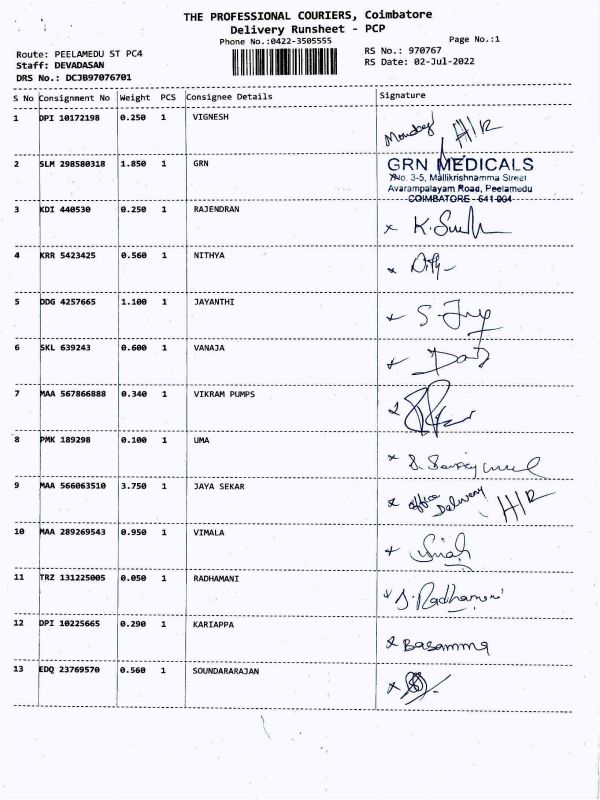 THE PROFESSIONAL COURIERS, Coimbatore
Delivery Runsheet - PCP
Phone No.:0422-3505555
Page No.:1
Route: PEELAMEDU ST PC4
Staff: DEVADASAN
DRS No.: DCJB97076701
RS No.: 970767
RS Date: 02-Jul-2022
S No Consignment No Weight PCS Consignee Details Signature
1 DPI 10172198 0.250 1 VIGNESH Monday H/R
2 SLM 298580318 1.850 1 GRN GRN MEDICALS
No. 3-5, Mallikrishnamma Street
Avarampalayam Road, Peelamedu
COIMBATORE - 641 004
3 KDI 440530 0.250 1 RAJENDRAN
4 KRR 5423425 0.560 1 NITHYA
5 DDG 4257665 1.100 1 JAYANTHI
6 SKL 639243 0.600 1 VANAJA
7 MAA 567866888 0.340 1 VIKRAM PUMPS
8 PMK 189298 0.100 1 UMA
9 MAA 566063510 3.750 1 JAYA SEKAR office Delivery H/R
10 MAA 289269543 0.950 1 VIMALA
11 TRZ 131225005 0.050 1 RADHAMANI Radhamani
12 DPI 10225665 0.290 1 KARIAPPA Basamma
13 EDQ 23769570 0.560 1 SOUNDARARAJAN